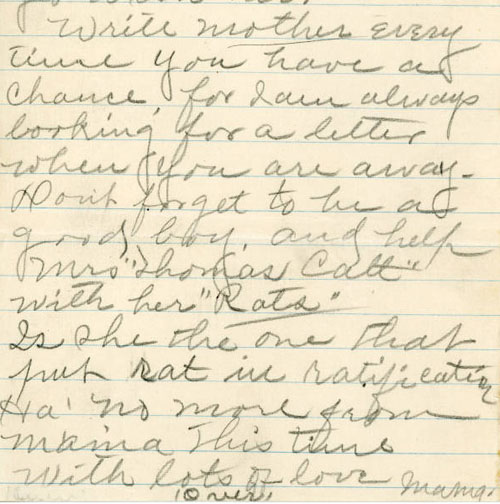 Write mother every
time you have a
chance, for I am always
looking for a letter
when you are away.
Dont forget to be a
good boy, and help
Mrs "Thomas Catt"
with her "Rats"
Is she the one that
put rat in ratification
Ha! No more from
mama This time
With lots of love Mama.
(Over)